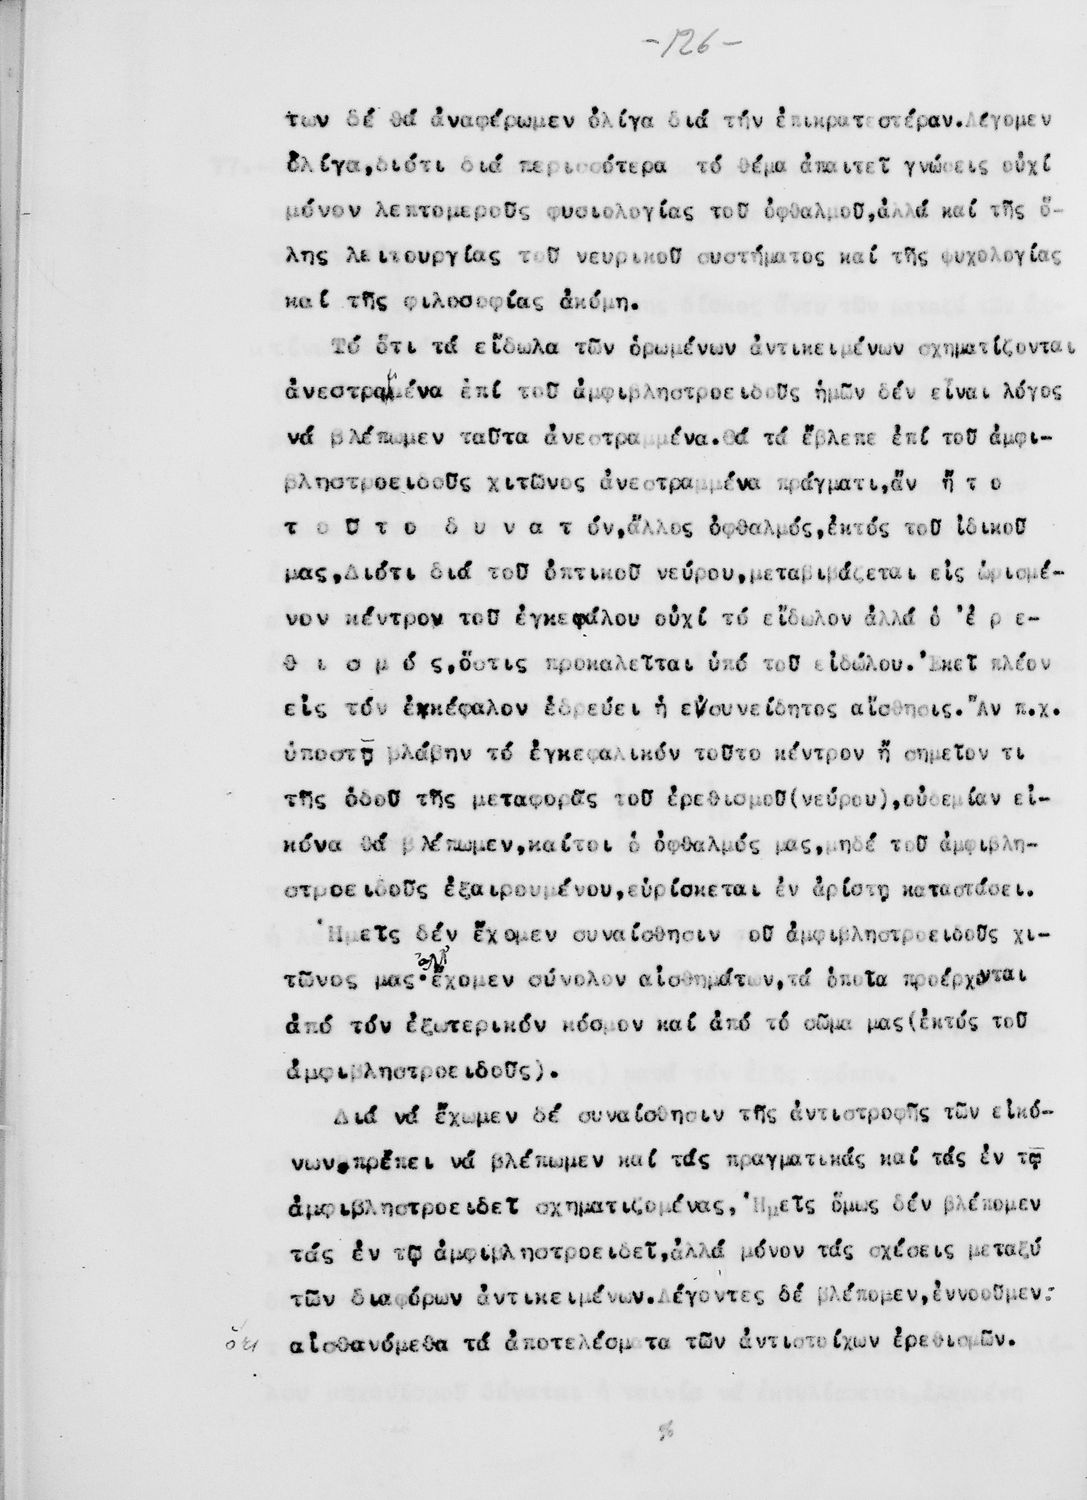 -126-
των δέ θά ἀναφέρωμεν ὀλίγα διά τήν ἐπικρατεστέραν.Λέγομεν
ὀλίγα,διότι διά περισσότερα τό θέμα ἀπαιτεῖ γνώσεις οὐχί
μόνον λεπτομεροῦς φυσιολογίας τοῦ ὀφθαλμοῦ,ἀλλά καί τῆς ὅ-
λης λειτουργίας τοῦ νευρικοῦ συστήματος καί τῆς ψυχολογίας
καί τῆς φιλοσοφίας ἀκόμη.
Τό ὅτι τά εἴδωλα τῶν ὁρωμένων ἀντικειμένων σχηματίζονται
ἀνεστραμμένα ἐπί τοῦ ἀμφιβληστροειδοῦς ἡμῶν δέν εἶναι λόγος
νά βλέπωμεν ταῦτα ἀνεστραμμένα.Θά τά ἔβλεπε ἐπί τοῦ ἀμφι-
βληστροειδοῦς χιτῶνος ἀνεστραμμένα πράγματι,ἄν ἤ τ ο
τ ο ῦ τ ο δ υ ν α τ όν,ἄλλος ὀφθαλμός,ἐκτός τοῦ ἰδικοῦ
μας,Διότι διά τοῦ ὀπτικοῦ νεύρου,μεταβιβάζεται εἰς ὡρισμέ-
νον κέντρον τοῦ ἐγκεφάλου οὐχί τό εἴδωλον ἀλλά ὁ ἐ ρ ε-
θ ι σ μ ό ς,ὅστις προκαλεῖται ὑπό τοῦ εἰδώλου.Ἐκεῖ πλέον
εἰς τόν ἐγκέφαλον ἑδρεύει ἡ ενσυνείδητος αἴσθησις.Ἄν π.χ.
ὑποστῇ βλάβην τό ἐγκεφαλικόν τοῦτο κέντρον ἤ σημεῖον τι
τῆς ὁδοῦ τῆς μεταφορᾶς τοῦ ἐρεθισμοῦ(νεύρου),οὐδεμίαν εἰ-
κόνα θά βλέπωμεν,καίτοι ὁ ὀφθαλμός μας,μηδέ τοῦ ἀμφιβλη-
στροειδοῦς ἐξαιρουμένου,εὑρίσκεται ἐν ἀρίστῃ καταστάσει.
Ἡμεῖς δέν ἔχομεν συναίσθησιν τοῦ ἀμφιβληστροειδοῦς χι-
τῶνος μας·ἀλλ' ἔχομεν σύνολον αἰσθημάτων,τά ὁποῖα προέρχονται
ἀπό τόν ἐξωτερικόν κόσμον καί ἀπό τό σῶμα μας(ἐκτός τοῦ
ἀμφιβληστροειδοῦς).
Διά νά ἔχωμεν δέ συναίσθησιν τῆς ἀντιστροφῆς τῶν εἰκό-
νων,πρέπει νά βλέπωμεν καί τάς πραγματικάς καί τάς ἐν τῷ
ἀμφιβληστροειδεῖ σχηματιζομένας, Ἡμεῖς ὅμως δέν βλέπομεν
τάς ἐν τῷ ἀμφιβληστροειδεῖ,ἀλλά μόνον τάς σχέσεις μεταξύ
τῶν διαφόρων ἀντικειμένων.Λέγοντες δέ βλέπομεν,ἐννοοῦμεν:
ὅτι αἰσθανόμεθα τά ἀποτελέσματα τῶν ἀντιστοίχων ἐρεθισμῶν.